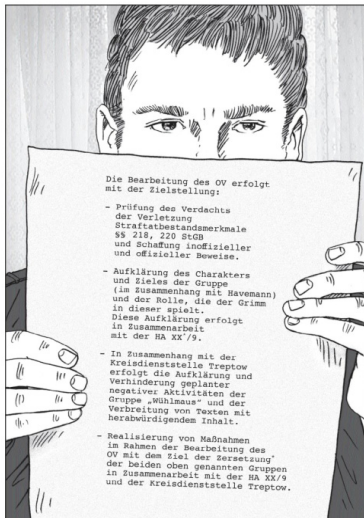 Die Bearbeitung des OV erfolgt
mit der Zielstellung:
- Prüfung des Verdachts
der Verletzung
Straftatbestandsmerkmale
§§ 218, 220 StGB
und Schaffung inoffizieller
und offizieller Beweise.
- Aufklärung des Charakters
und Zieles der Gruppe
(im Zusammenhang mit Havemann)
und der Rolle, die der Grimm
in dieser spielt.
Diese Aufklärung erfolgt
in Zusammenarbeit
mit der HA XX/9.
- In Zusammenhang mit der
Kreisdienststelle Treptow
erfolgt die Aufklärung und
Verhinderung geplanter
negativer Aktivitäten der
Gruppe „Wühlmaus" und der
Verbreitung von Texten mit
herabwürdigendem Inhalt.
- Realisierung von Maßnahmen
im Rahmen der Bearbeitung des
OV mit dem Ziel der Zersetzung*
der beiden oben genannten Gruppen
in Zusammenarbeit mit der HA XX/9
und der Kreisdienststelle Treptow.